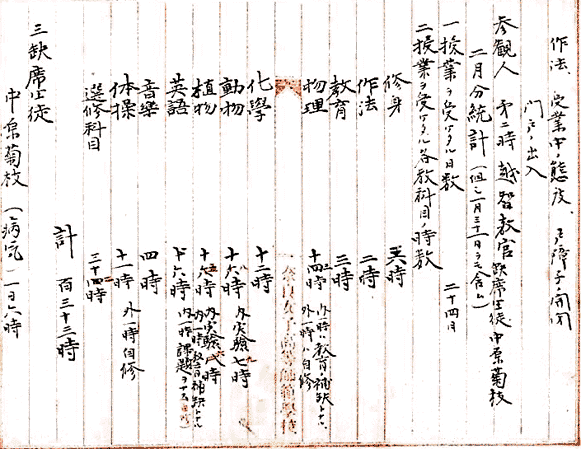 作法、授業中ノ態度、及障子ノ開閉
門戸ノ出入
参観人 第二時 越智教官 欠席生徒 中原菊枝
二月分統計(但シ一月三十一日ヲモ含ム)
一 授業ヲ受ケタル日数 二十四日
二 授業ヲ受ケタル各教科目ノ時数
修身 六時
作法 二時
教育 三時
物理 十四時 内一時ハ教育ノ補欠トナル 外一時ハ自修
奈良女子高等師範学校
化學 十二時
動物 十六時 内実験七時
植物 十六時 内実験八時
英語 十六時 内一時課題
音樂 四時
体操 十一時 外一時自修
選修科目 三十四時
計 百三十三時
三 欠席生徒
中原菊枝(病気) 一日六時